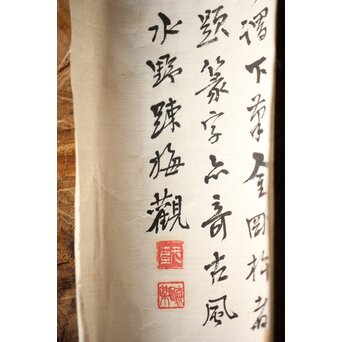 謂下筆金剛杵者
題篆字亦奇古風
水野疎梅觀